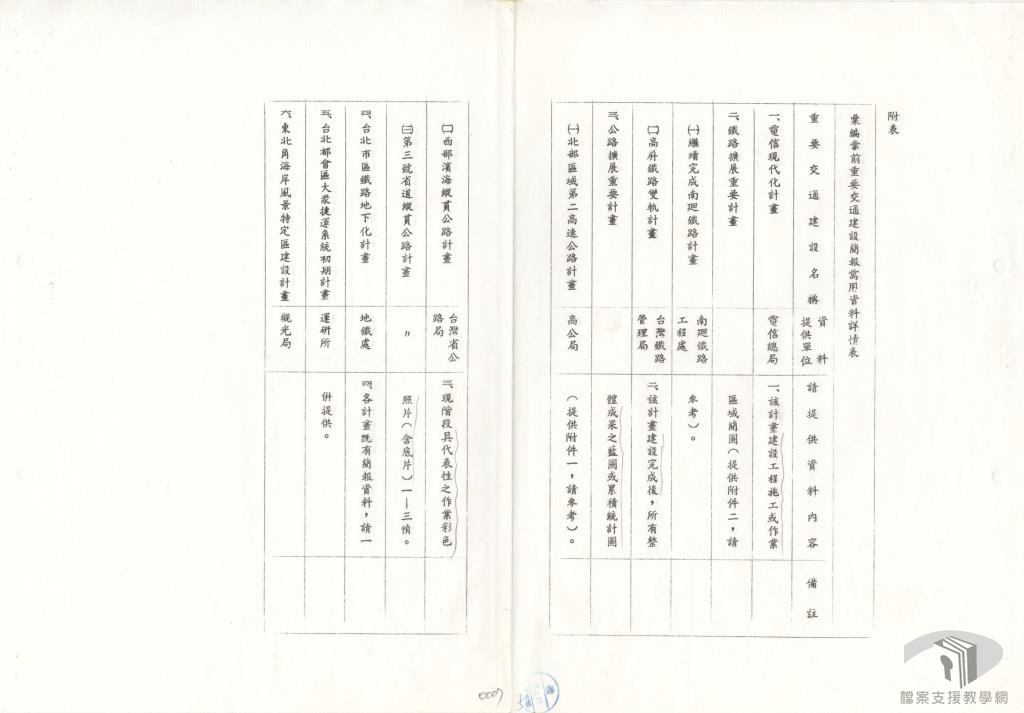 附表
彙編當前重要交通建設簡報需用資料詳情表
重要交通建設名稱
資料
提供單位
請提供資料內容
備註
一、電信現代化計畫
電信總局
一、該計畫建設工程施工或作業
二、鐵路擴展重要計畫
區域簡圖（提供附件二，請
㈠繼續完成南迴鐵路計畫
南迴鐵路
工程處
參考）。
㈡高屏鐵路雙軌計畫
台灣鐵路
管理局
二、該計畫建設完成後，所有整
三、公路擴展重要計畫
體成果之藍圖或累積統計圖
㈠北部區域第二高速公路計畫
高公局
（提供附件一，請參考）。
㈡西部濱海縱貫公路計畫
台灣省公
路局
三、現階段具代表性之作業彩色
㈢第三號省道縱貫公路計畫
〃
照片（含底片）一—三幀。
四、台北市區鐵路地下化計畫
地鐵處
四、各計畫既有簡報資料，請一
五、台北都會區大眾捷運系統初期計畫
運研所
併提供。
六、東北角海岸風景特定區建設計畫
觀光局
0007
檔案支援教學網